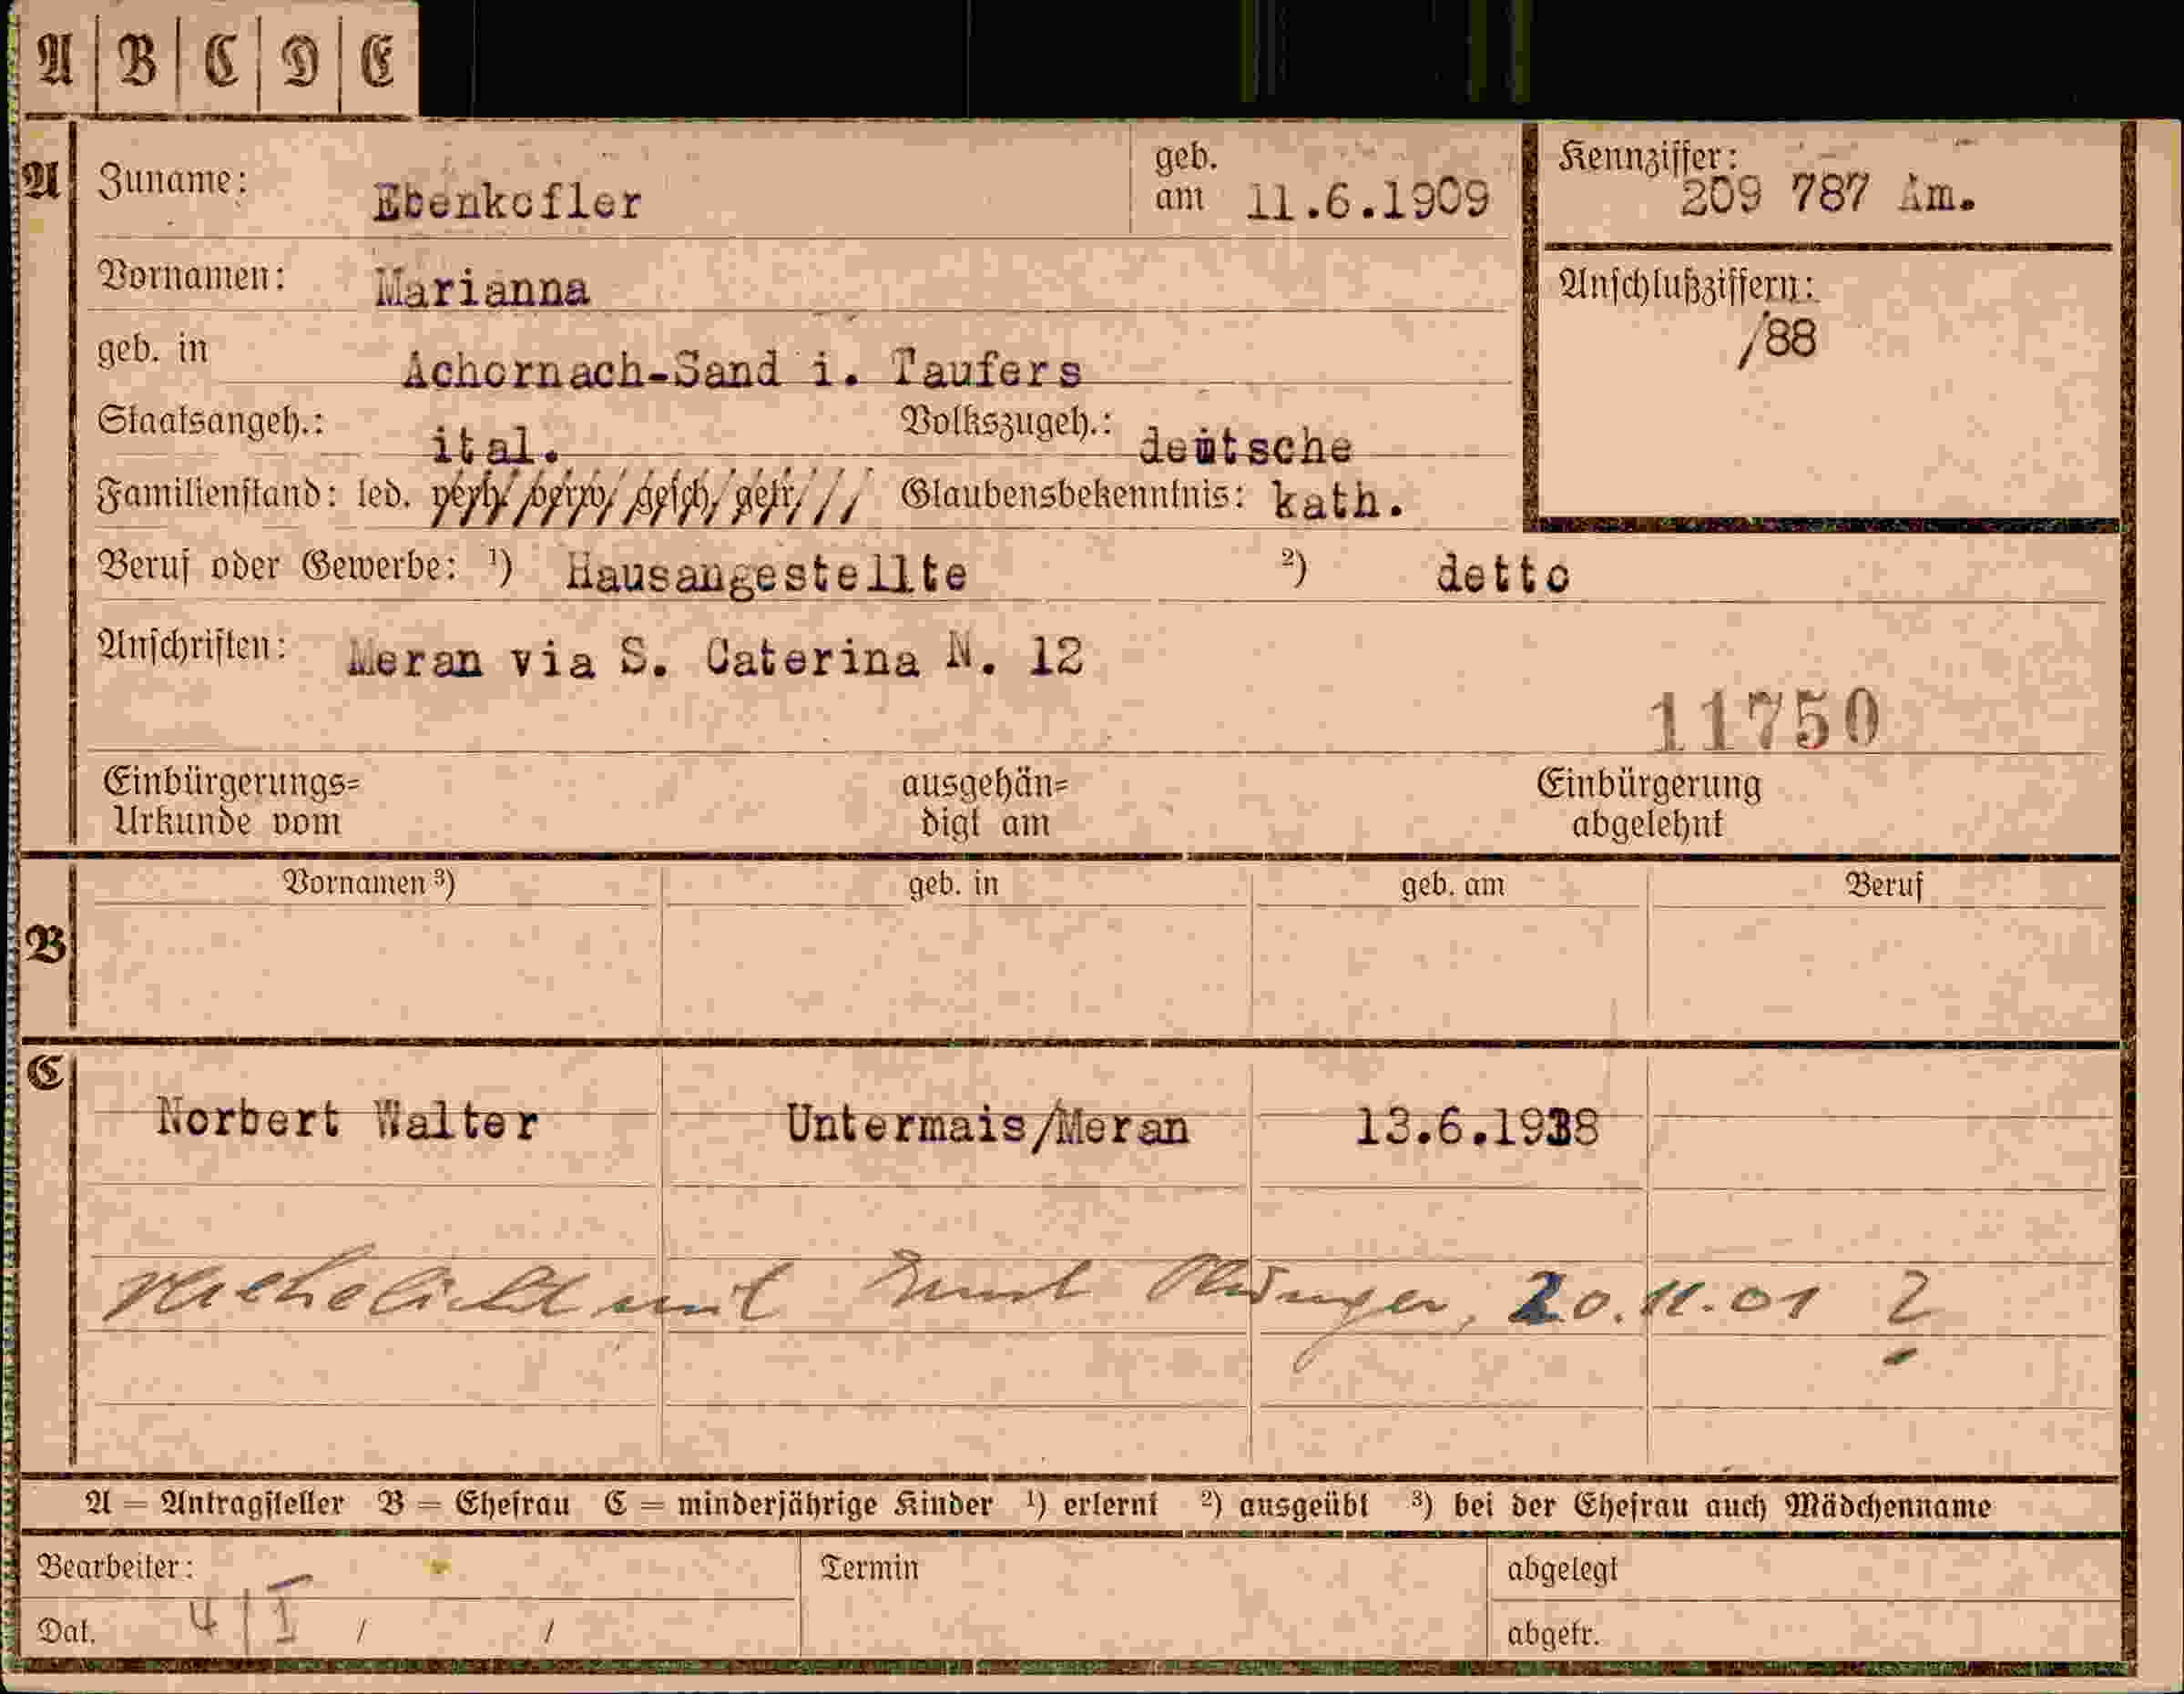 A B C D E
A Zuname: Ebenkofler geb. am 11.6.1909 Kennziffer: 209 787 Am.
Vornamen: Marianna Anschlußziffern: /88
geb. in Achornach-Sand i. Taufers
Staatsangeh.: ital. Volkszugeh.: deutsche
Familienstand: led. verh/ verw/ gesch/ getr/ / / Glaubensbekenntnis: kath.
Beruf oder Gewerbe: ¹) Hausangestellte ²) detto
Anschriften: Meran via S. Caterina N. 12
11750
Einbürgerungs= ausgehän= Einbürgerung
Urkunde vom digt am abgelehnt
Vornamen ³) geb. in geb. am Beruf
B
C
Norbert Walter Untermais/Meran 13.6.1938
Verehelicht mit 20.11.01 ?
A = Antragsteller B = Ehefrau C = minderjährige Kinder ¹) erlernt ²) ausgeübt ³) bei der Ehefrau auch Mädchenname
Bearbeiter: Termin abgelegt
Dat. 4 | I / / abgetr.